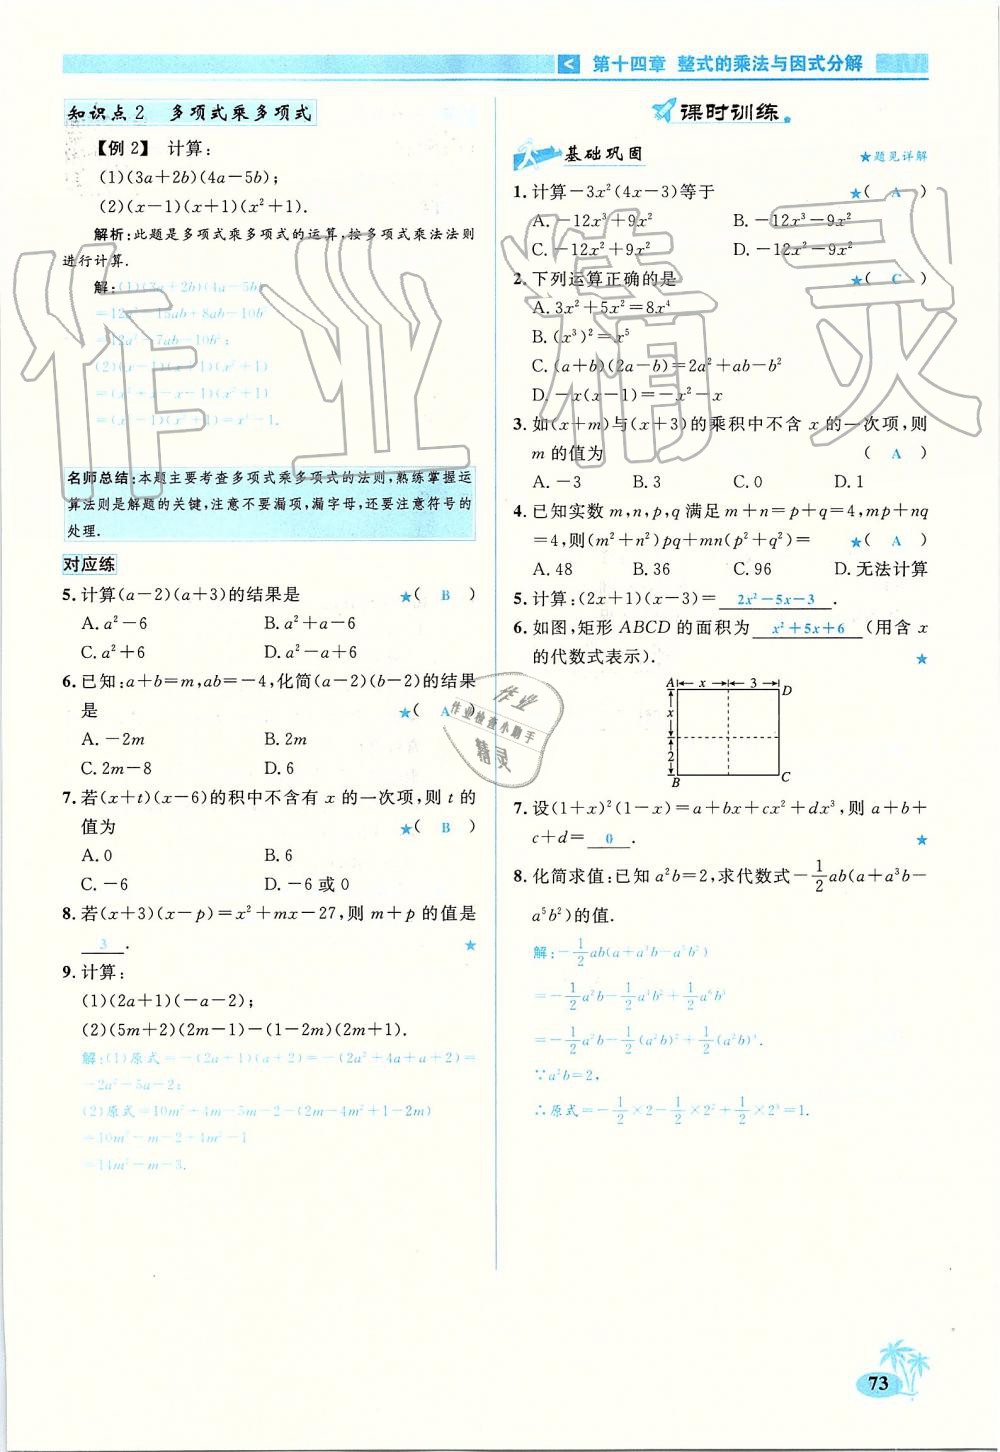 < 第十四章 整式的乘法与因式分解
知识点2 多项式乘多项式
【例2】 计算:
(1)(3a+2b)(4a-5b);
(2)(x-1)(x+1)(x²+1).
解析:此题是多项式乘多项式的运算,按多项式乘法法则
进行计算.
解:(1)(3a+2b)(4a-5b)
=12a²-15ab+8ab-10b²
=12a²-7ab-10b²;
(2)(x-1)(x+1)(x²+1)
=(x²+x-x-1)(x²+1)
=(x²-1)(x²+1)=x⁴-1.
名师总结:本题主要考查多项式乘多项式的法则,熟练掌握运
算法则是解题的关键,注意不要漏项,漏字母,还要注意符号的
处理.
对应练
5.计算(a-2)(a+3)的结果是 ★( B )
A.a²-6 B.a²+a-6
C.a²+6 D.a²-a+6
6.已知:a+b=m,ab=-4,化简(a-2)(b-2)的结果
是 ★( A )
A.-2m B.2m
C.2m-8 D.6
7.若(x+t)(x-6)的积中不含有x的一次项,则t的
值为 ★( B )
A.0 B.6
C.-6 D.-6或0
8.若(x+3)(x-p)=x²+mx-27,则m+p的值是
3 . ★
9.计算:
(1)(2a+1)(-a-2);
(2)(5m+2)(2m-1)-(1-2m)(2m+1).
解:(1)原式=-(2a+1)(a+2)=-(2a²+4a+a+2)=
-2a²-5a-2;
(2)原式=10m²+4m-5m-2-(2m-4m²+1-2m)
=10m²-m-2+4m²-1
=14m²-m-3.
课时训练
基础巩固 ★题见详解
1.计算-3x²(4x-3)等于 ★( A )
A.-12x³+9x² B.-12x³-9x²
C.-12x²+9x² D.-12x²-9x²
2.下列运算正确的是 ★( C )
A.3x²+5x²=8x⁴
B.(x³)²=x⁵
C.(a+b)(2a-b)=2a²+ab-b²
D.-x(x-1)=-x²-x
3.如(x+m)与(x+3)的乘积中不含x的一次项,则
m的值为 ( A )
A.-3 B.3 C.0 D.1
4.已知实数m,n,p,q满足m+n=p+q=4,mp+nq
=4,则(m²+n²)pq+mn(p²+q²)= ★( A )
A.48 B.36 C.96 D.无法计算
5.计算:(2x+1)(x-3)= 2x²-5x-3 .
6.如图,矩形ABCD的面积为 x²+5x+6 (用含x
的代数式表示). ★
A x 3 D
x
2
B C
7.设(1+x)²(1-x)=a+bx+cx²+dx³,则a+b+
c+d= 0 . ★
8.化简求值:已知a²b=2,求代数式-1/2ab(a+a³b-
a⁵b²)的值.
解:-1/2ab(a+a³b-a⁵b²)
=-1/2a²b-1/2a⁴b²+1/2a⁶b³
=-1/2a²b-1/2(a²b)²+1/2(a²b)³.
∵a²b=2,
∴原式=-1/2×2-1/2×2²+1/2×2³=1.
73
作业精灵
作业
作业检查小助手
精灵